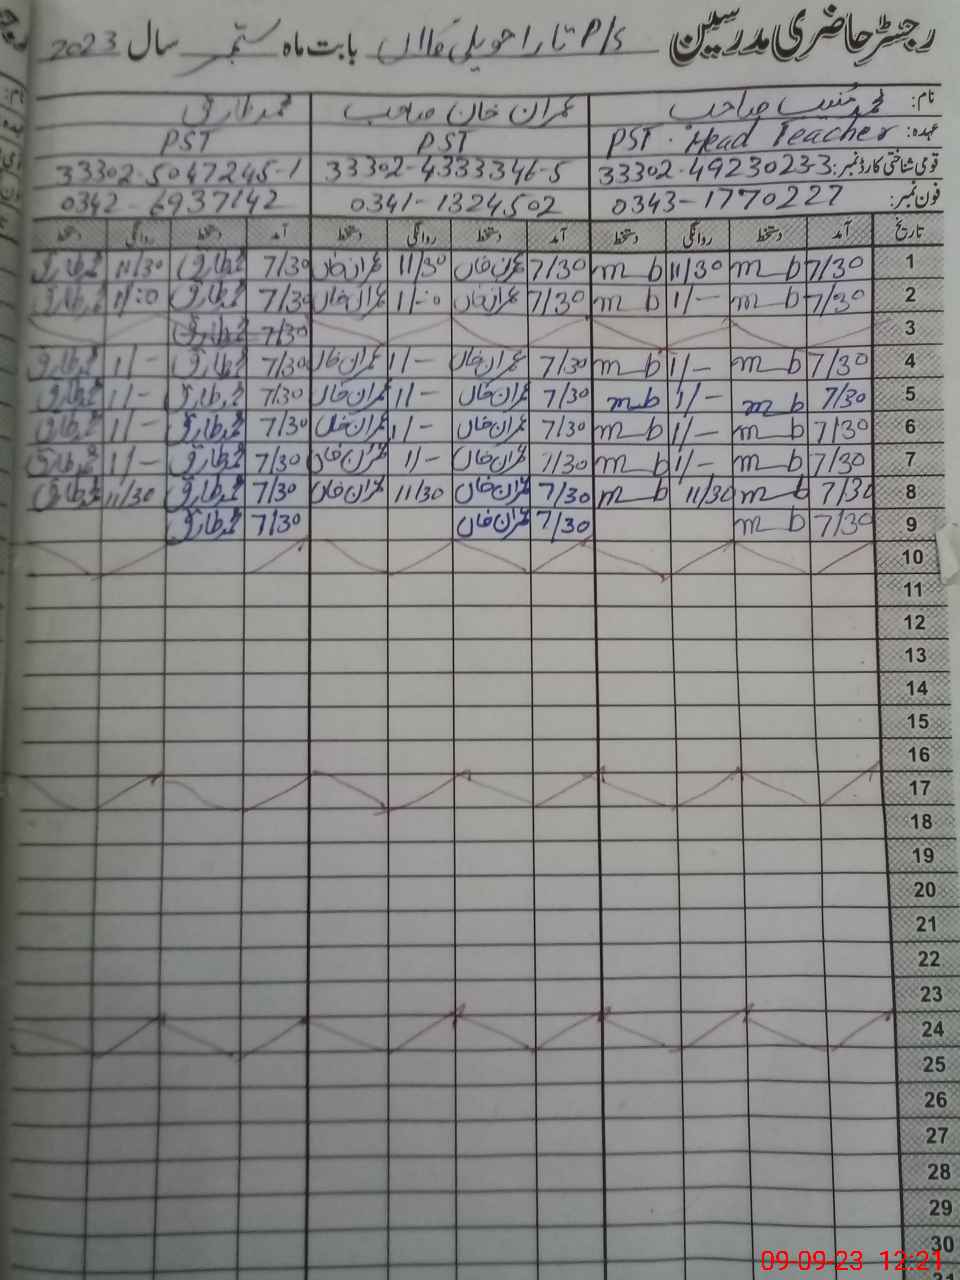 رجسٹر حاضری مدرسین P/S تارا حویلی بابت ماہ ستمبر سال 2023
نام: محمد منیب صاحب عمران خان صاحب محمد طارق
عہدہ: PST. Head Teacher PST PST
قومی شناختی کارڈ نمبر: 33302-4923023-3 33302-4333346-5 33302-5047245-1
فون نمبر: 0343-1770227 0341-1324502 0342-6937142
تاریخ آمد دستخط روانگی دستخط آمد دستخط روانگی دستخط آمد دستخط روانگی دستخط
1 7/30 m b 11/30 m b 7/30 عمران خان 11/30 عمران خان 7/30 محمد طارق 11/30 محمد طارق
2 7/30 m b 1/- m b 7/30 عمران خان 1/-:0 عمران خان 7/30 محمد طارق 1/:0 محمد طارق
3 7/30 محمد طارق
4 7/30 m b 1/- m b 7/30 عمران خان 1/- عمران خان 7/30 محمد طارق 1/- محمد طارق
5 7/30 m b 1/- m b 7/30 عمران خان 1/- عمران خان 7/30 محمد طارق 1/- محمد طارق
6 7/30 m b 1/- m b 7/30 عمران خان 1/- عمران خان 7/30 محمد طارق 1/- محمد طارق
7 7/30 m b 1/- m b 7/30 عمران خان 1/- عمران خان 7/30 محمد طارق 1/- محمد طارق
8 7/30 m b 11/30 m b 7/30 عمران خان 11/30 عمران خان 7/30 محمد طارق 11/30 محمد طارق
9 7/30 m b 7/30 عمران خان 7/30 محمد طارق
10
11
12
13
14
15
16
17
18
19
20
21
22
23
24
25
26
27
28
29
30
09-09-23 12:21